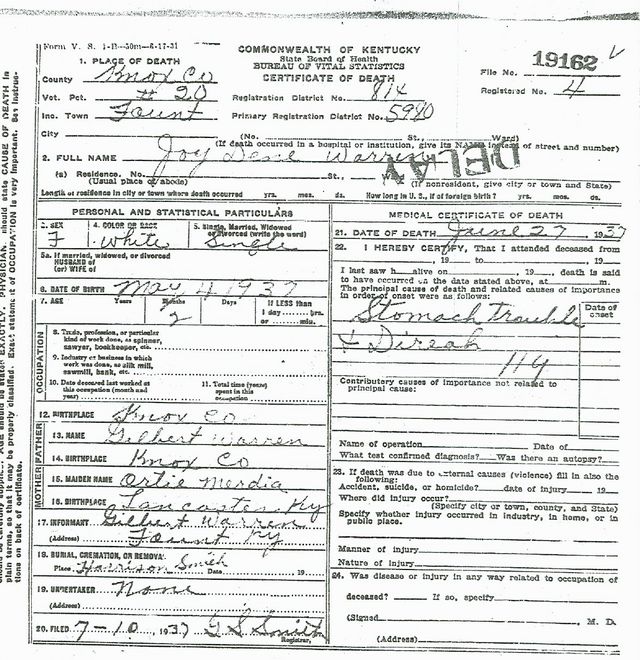 Form V. S. 1-B—50m—6-17-31
COMMONWEALTH OF KENTUCKY
State Board of Health
BUREAU OF VITAL STATISTICS
CERTIFICATE OF DEATH
19162
File No.
Registered No. 4
1. PLACE OF DEATH
County Knox Co
Vot. Pct. # 20 Registration District No. 814
Inc. Town Fount Primary Registration District No. 5940
City (No. St., Ward)
(If death occurred in a hospital or institution, give its NAME instead of street and number)
2. FULL NAME Joy Dene Warren
DELAY
(a) Residence. No. St.,
(Usual place of abode) (If nonresident, give city or town and State)
Length of residence in city or town where death occurred yrs. mos. ds. How long in U. S., if of foreign birth? yrs. mos. ds.
PERSONAL AND STATISTICAL PARTICULARS
3. SEX 4. COLOR OR RACE 5. Single, Married, Widowed
or Divorced (write the word)
F White Single
5a. If married, widowed, or divorced
HUSBAND of
(or) WIFE of
6. DATE OF BIRTH May 4 1937
7. AGE Years Months Days If LESS than
1 day yrs.
or min.
2
OCCUPATION
8. Trade, profession, or particular
kind of work done, as spinner,
sawyer, bookkeeper, etc.
9. Industry or business in which
work was done, as silk mill,
sawmill, bank, etc.
10. Date deceased last worked at
this occupation (month and
year)
11. Total time (years)
spent in this
occupation
12. BIRTHPLACE Knox Co
FATHER
13. NAME Gilbert Warren
14. BIRTHPLACE Knox Co
MOTHER
15. MAIDEN NAME Ortie Merdia
16. BIRTHPLACE Lancaster Ky
17. INFORMANT Gilbert Warren
(Address) Fount Ky
18. BURIAL, CREMATION, OR REMOVAL
Place Harrison Smith Date 19
19. UNDERTAKER None
(Address)
20. FILED 7-10, 1937 G S Smith
Registrar.
MEDICAL CERTIFICATE OF DEATH
21. DATE OF DEATH June 27, 1937
22. I HEREBY CERTIFY, That I attended deceased from
, 19 to , 19
I last saw h alive on , 19 , death is said
to have occurred on the date stated above, at m.
The principal cause of death and related causes of importance
in order of onset were as follows:
Date of
onset
Stomach trouble
& Direah
119
Contributory causes of importance not related to
principal cause:
Name of operation Date of
What test confirmed diagnosis? Was there an autopsy?
23. If death was due to external causes (violence) fill in also the
following:
Accident, suicide, or homicide? date of injury 19
Where did injury occur?
(Specify city or town, county, and State)
Specify whether injury occurred in industry, in home, or in
public place.
Manner of injury
Nature of injury
24. Was disease or injury in any way related to occupation of
deceased? If so, specify
(Signed M. D.
(Address)
should state CAUSE OF DEATH in
plain terms, so that it may be properly classified. Exact statement of OCCUPATION is very important. See instruc-
tions on back of certificate.